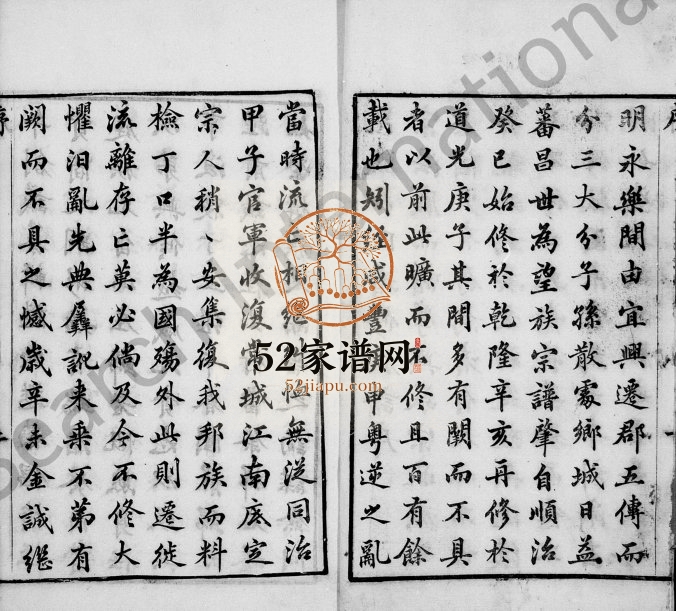 明永樂間由宜興遷郡五傳而
分三大分子孫散處鄉城日益
蕃昌世為望族宗譜肇自順治
癸巳始修於乾隆辛亥再修於
道光庚子其間多有闕而不具
者以前此曠而不修且百有餘
載也矧經咸豐庚申粵逆之亂
當時流亡相繼 無從同治
甲子官軍收復常城江南底定
宗人稍丶安集復我邦族而料
檢丁口半為國殤外此則遷徙
流離存亡莫必倘及今不修大
懼汩亂先典羼訛来乗不第有
闕而不具之憾歲辛未金誠繼
52家谱网
52jiapu.com
Search International